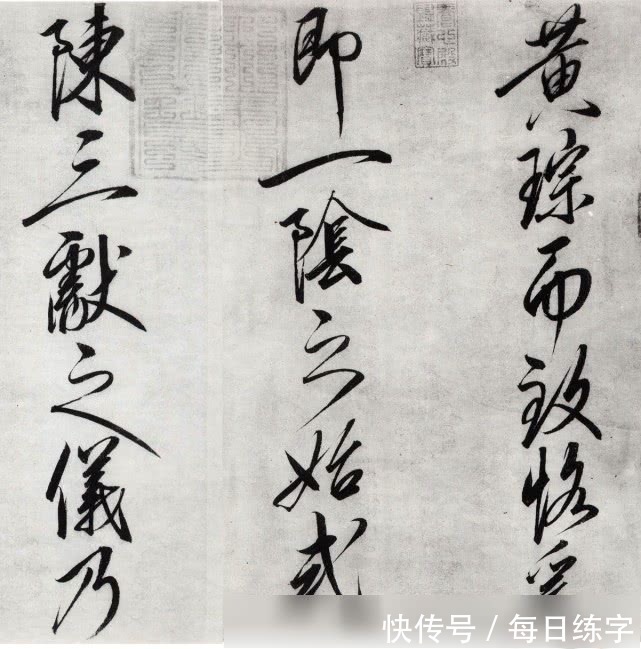 黃琮而致恪爰
即一陰之始式
陳三獻之儀乃
快传号 / 每日练字